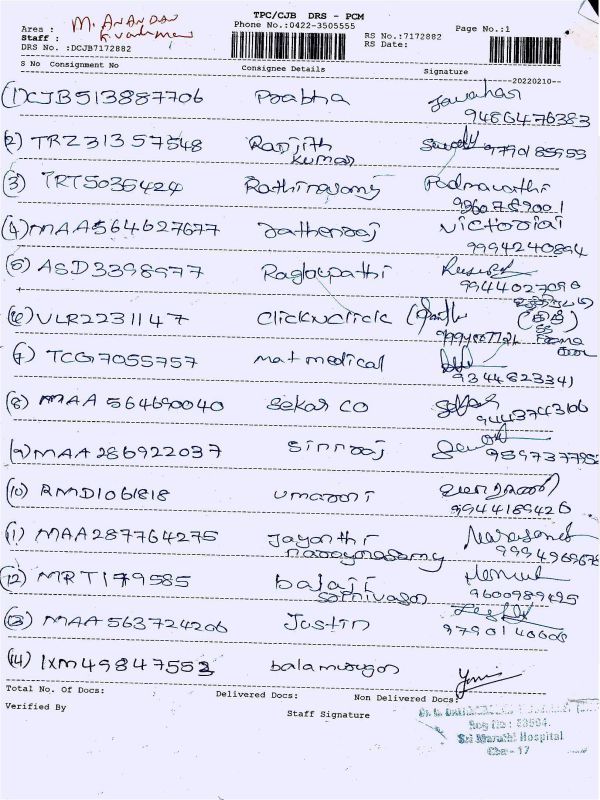 TPC/CJB DRS - PCM
Area : M. ANANDAN
Phone No.:0422-3505555
Staff :
RS No.:7172882 Page No.:1
DRS No. :DCJB7172882
RS Date:
S No Consignment No Consignee Details Signature
20220210
(1) CJB513887706 Prabha Jawahar
9486476383
(2) TRZ31357548 Ranjith
Kumar 9790185959
(3) TRT5035424 Rathinasamy Padmavathi
(4) MAA564627677 Jatheroaj Victoriai
9994240894
(5) ASD3398977 Ragupathi
9944027090
(6) VLR2231147 ClicknClick
(7) TCG7055757 mat medical
9344823341
(8) MAA 564690040 Sekar CO
9443743166
(9) MAA286922037 Sinraj
(10) RMD1061818 umarani
9944189426
(11) MAA287764275 Jayanthi
narayanasamy
(12) MRT179585 balaji
srinivasan 9600989495
(13) MAA563724206 Justin
9790140608
(14) IXM49847553 balamurugan
Total No. Of Docs: Delivered Docs: Non Delivered Docs:
Verified By Staff Signature
Reg No : 83504.
Sri Maruthi Hospital
Cbe - 17